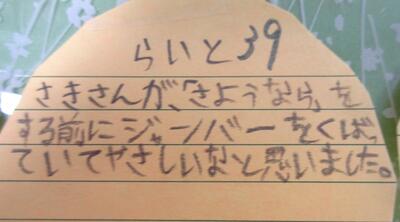 らいと39
さきさんが、「さようなら」を
する前にジャンバーをくばっ
ていてやさしいなと思いました。